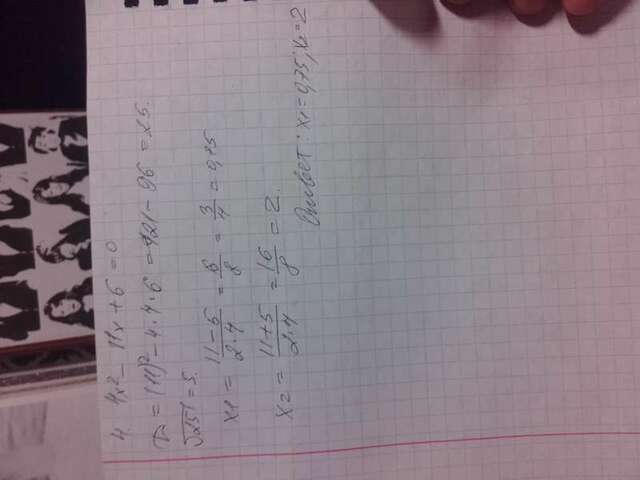 4 4x² - 11x + 6 = 0
D = (11)² - 4·4·6 = 121 - 96 = 25.
√25 = 5.
x1 = (11-5)/(2·4) = 6/8 = 3/4 = 0,75
x2 = (11+5)/(2·4) = 16/8 = 2.
Ответ: x1 = 0,75; x2 = 2